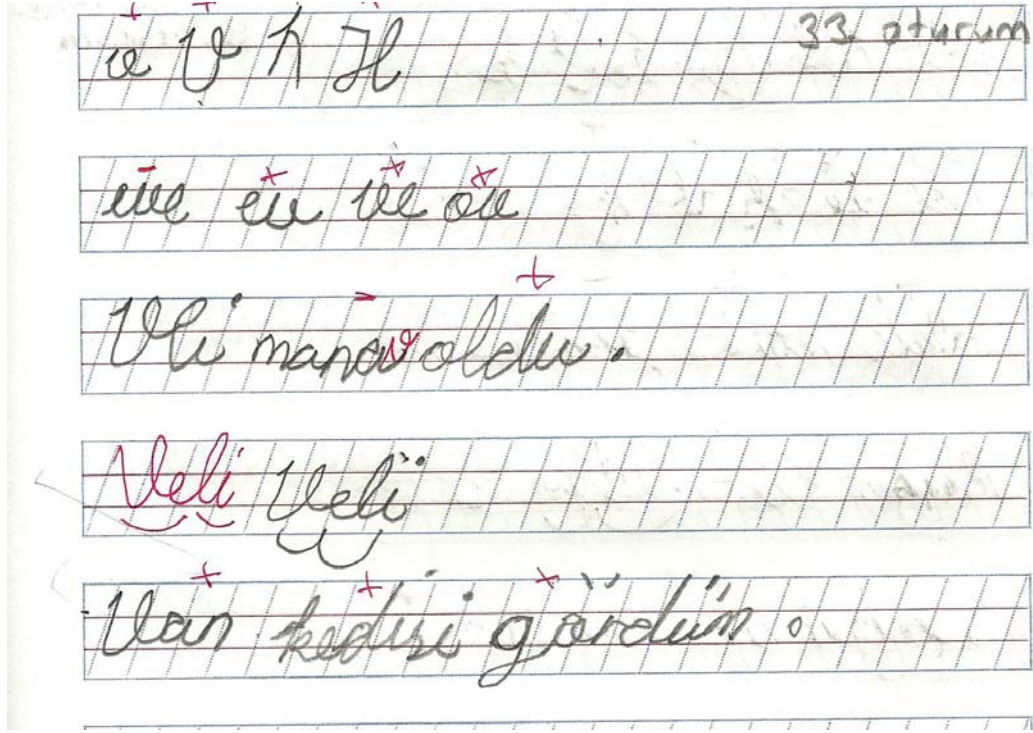 v V h H 33. oturum
eve ev ve ov
Vli manav oldu.
Veli Veli
Van kedisi gördüm.